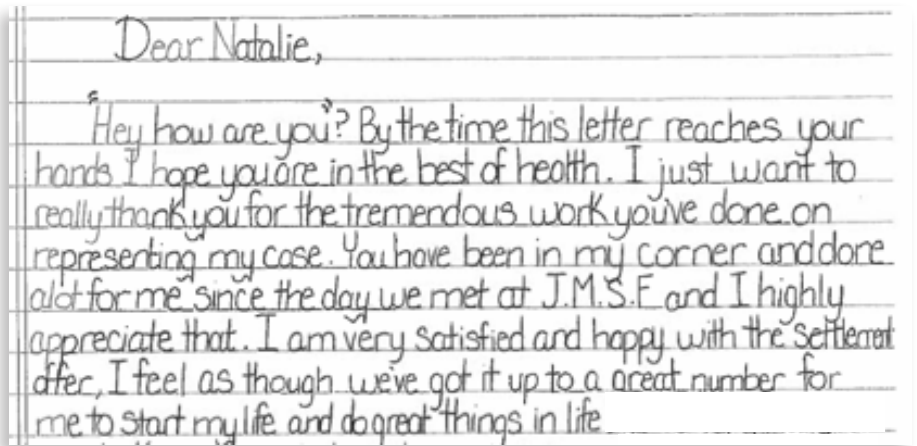 Dear Natalie,
"Hey how are you"? By the time this letter reaches your
hands I hope you are in the best of health. I just want to
really thank you for the tremendous work you've done on
representing my case. You have been in my corner and done
alot for me since the day we met at J.M.S.F and I highly
appreciate that. I am very satisfied and happy with the settlement
offer, I feel as though we've got it up to a great number for
me to start my life and do great things in life